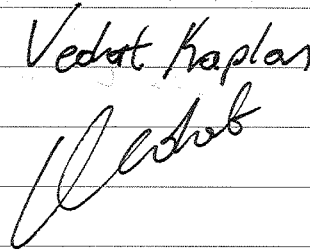 Vedat Kaplan
Vedat